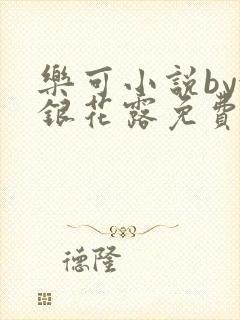 樂可小說by
銀花露免費
德隆